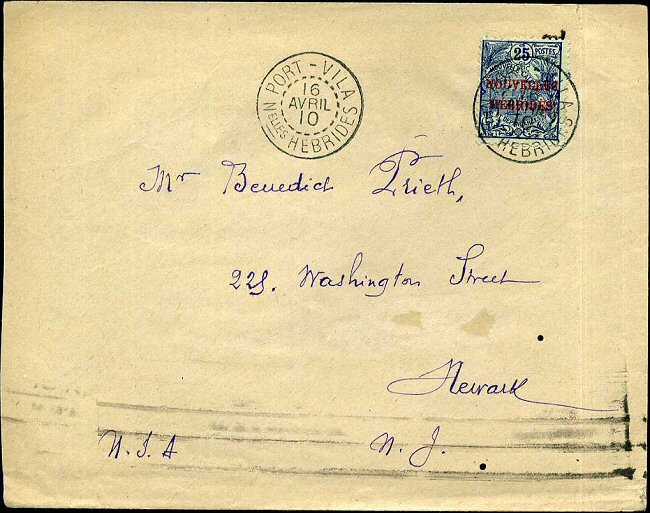 PORT-VILA
16
AVRIL
10
NELLES HEBRIDES
25 POSTES
NOUVELLES
HÉBRIDES
10
HEBRIDES
Mr Benedict Prieth,
229. Washington Street
Newark
U.S.A N. J.